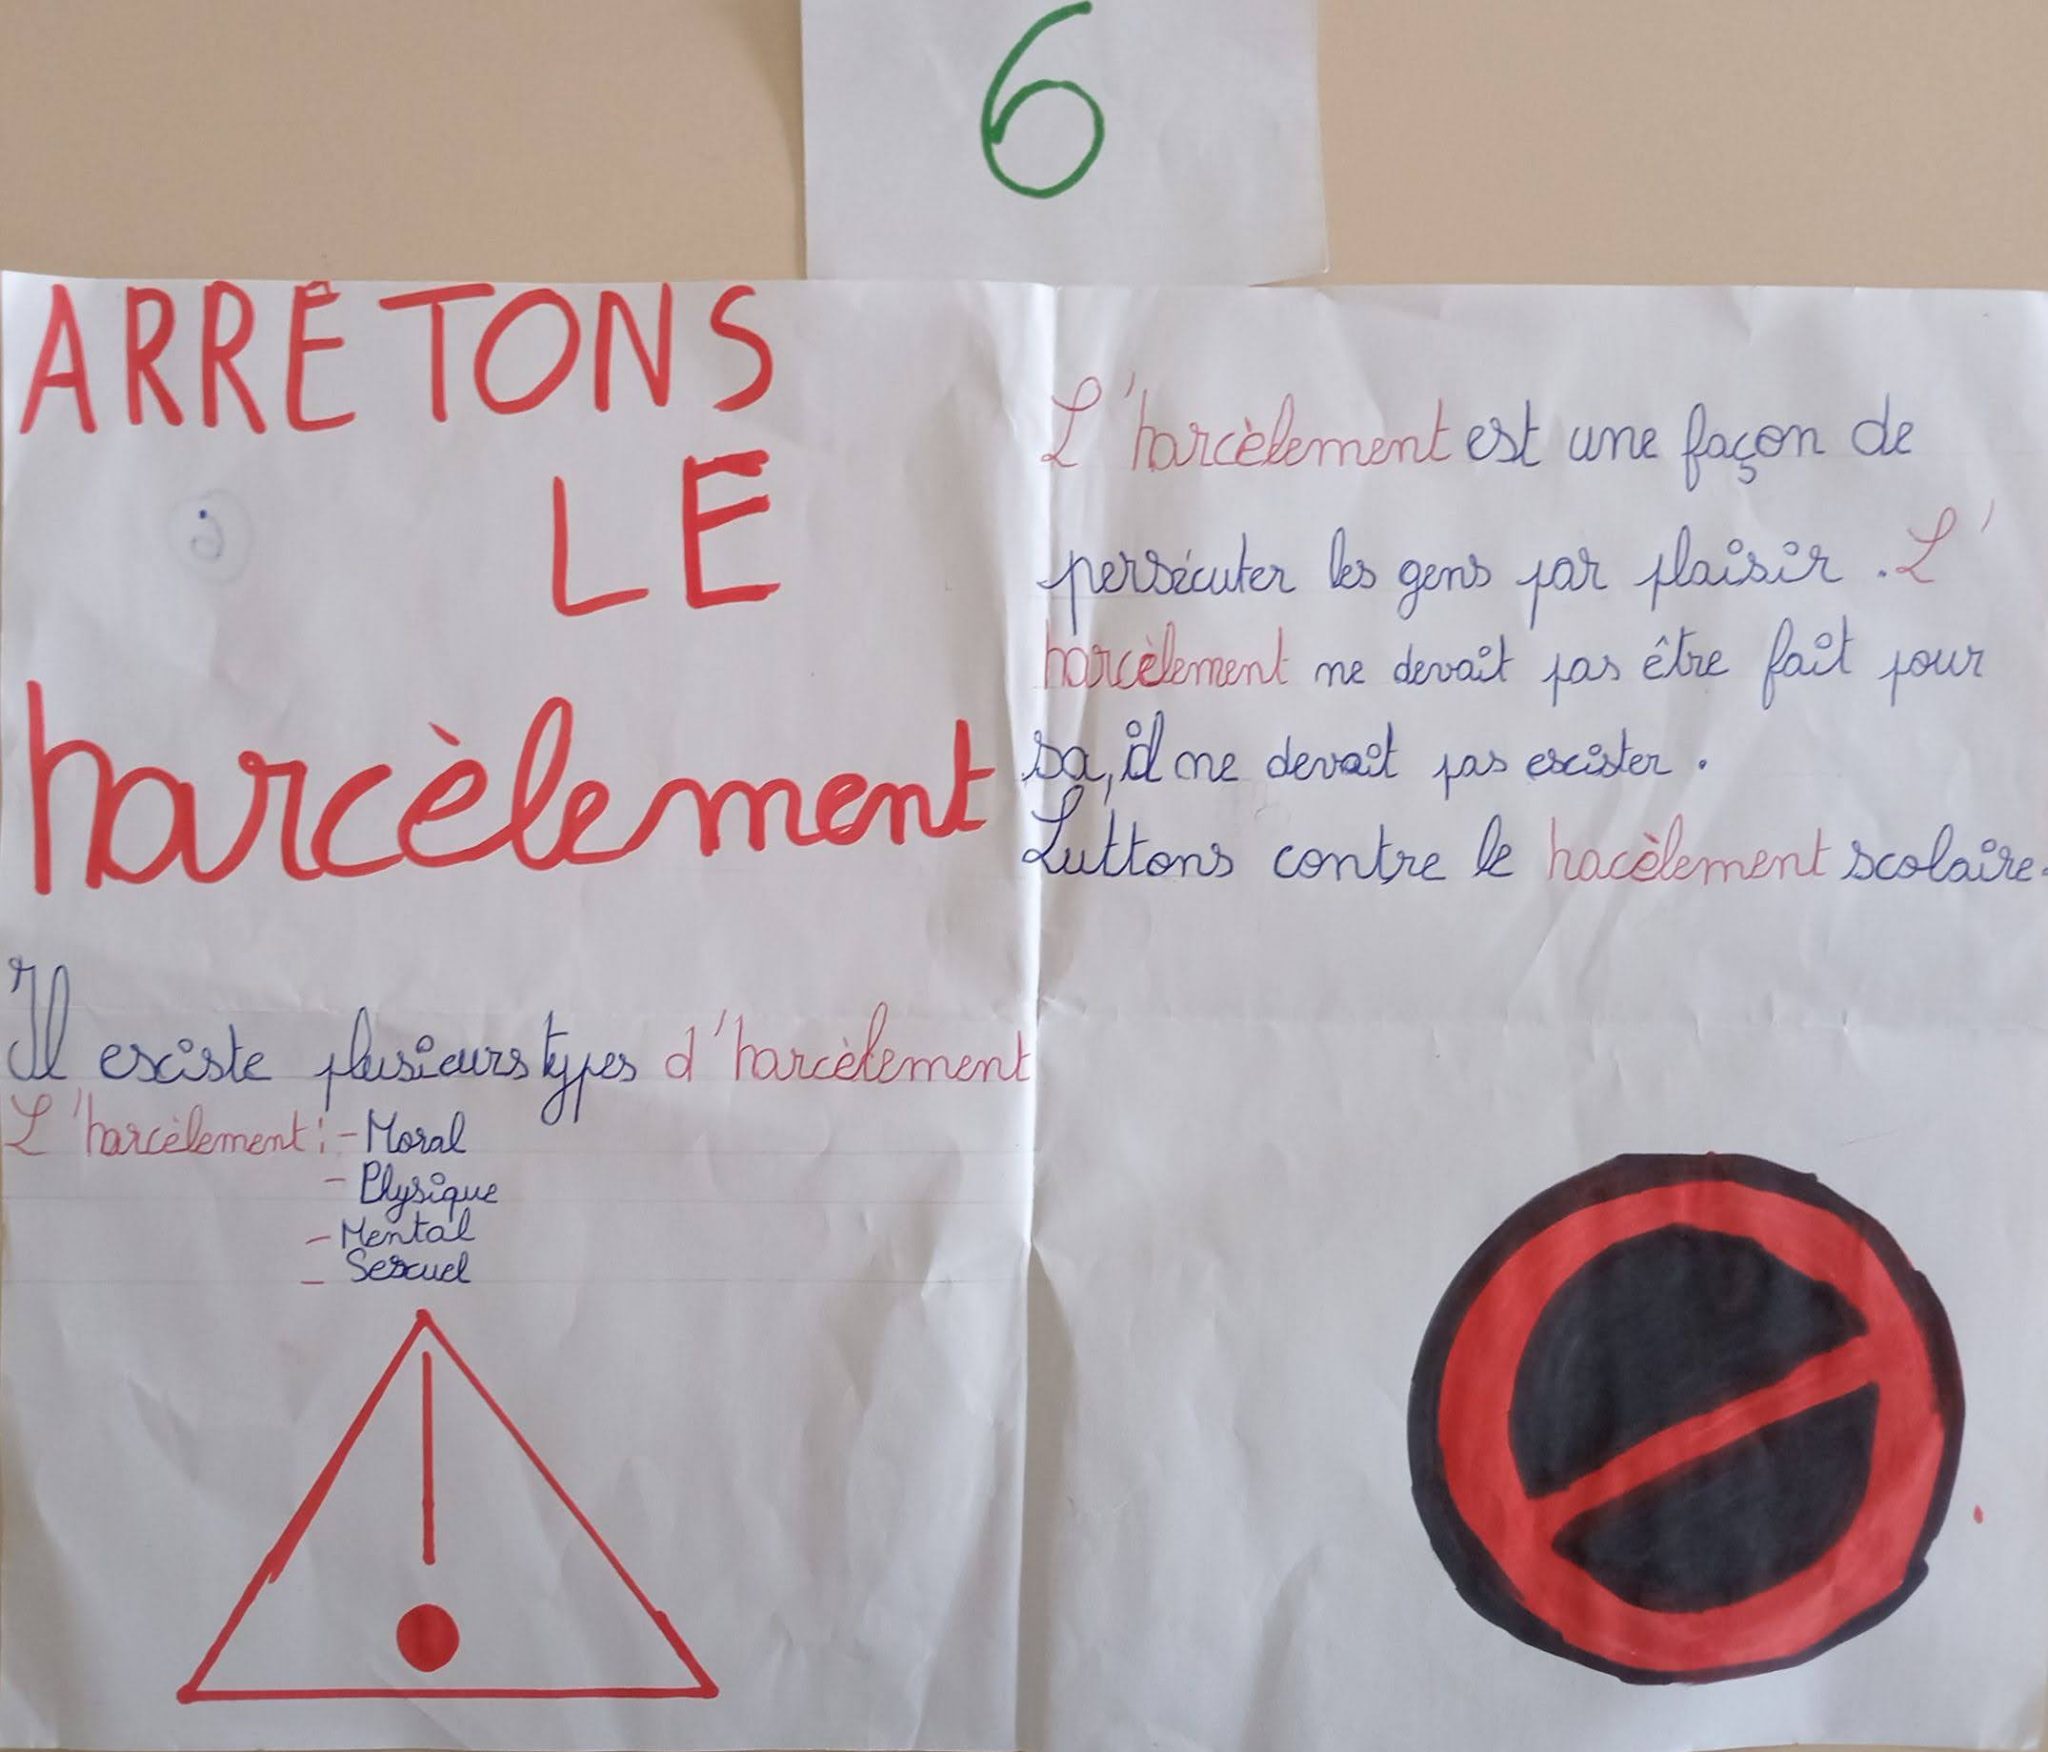 6
ARRÊTONS
LE
harcèlement
Il esciste plusieurs types d'harcèlement
L'harcèlement : - Moral
- Physique
- Mental
- Sexuel
L'harcèlement est une façon de
persécuter les gens par plaisir. L'
harcèlement ne devait pas être fait pour
sa, il ne devait pas escister.
Luttons contre le hacèlement scolaire.